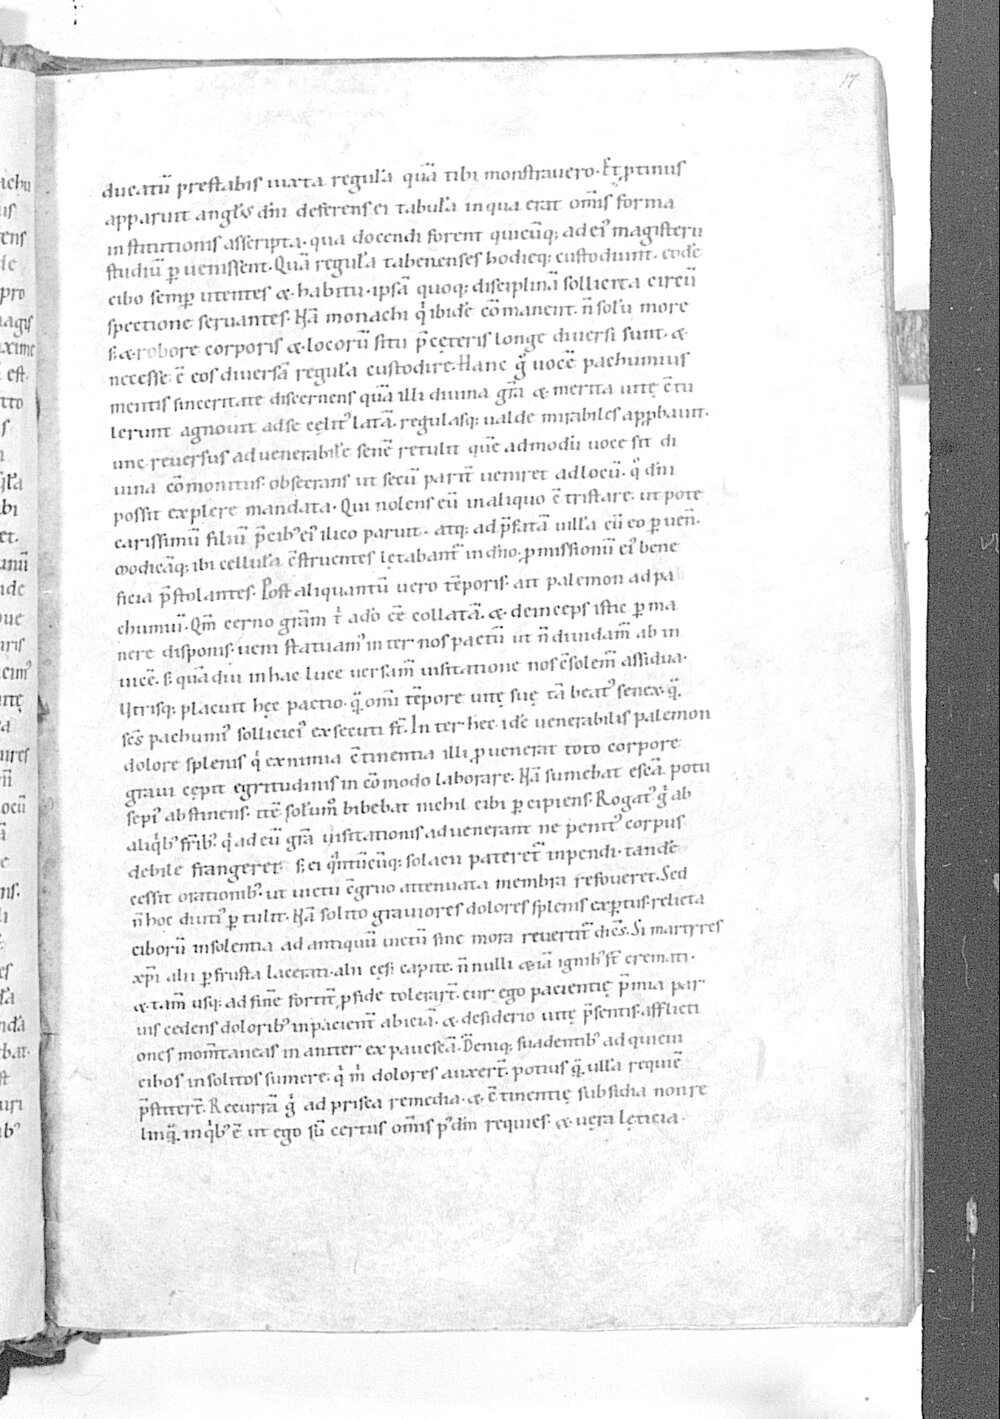 17
ducatū prestabis iuxta regulā quā tibi monstravero. Et ꝓtinus
apparuit angłs dn̄i deferens ei tabulā in qua erat om̄is forma
institutionis asscripta. qua docendi forent quicūq; ad eiꝰ magisterii
studiū ꝑuenissent. Quā regulā tabenenses hodieq; custodiunt. eodē
cibo semꝑ utentes & habitu. ipsā quoq; disciplinā sollicita circū
spectione seruantes. Nā monachi qͥ ibidē cōmanent. n̄ solū more
s; & robore corporis & locorū situ p̄ cęteris longe diuersi sunt. &
necesse ē eos diuersā regulā custodire. Hanc gͦ uocē pachumius
mentis sinceritate discernens quā illi diuina gr̄a & merita uitę ↄ̄tu
lerunt agnouit ad se cęlitꝰ latā. regulasq; ualde mirabiles apꝓbauit.
unc reuersus ad uenerabilē senē retulit quē admodū uoce sit di
uina cōmonitus. obsecrans ut secū parit̄ ueniret ad locū. qͦ dn̄i
possit explere mandata. Qui nolens eū in aliquo ↄ̄tristare. ut pote
carissimū filiū p̄cibꝰ eiꝰ ilico paruit. atq; ad p̄fatā uillā cū eo ꝑuen̄.
modicāq; ibi cellulā ↄ̄struentes lętabant̄ in dn̄o. ꝓmissionū eiꝰ bene
ficia p̄stolantes. Post aliquantū uero tēporis. ait palemon ad pa
chumiū. Qm̄ cerno gram̄ tͥ a do ēē collatā. & deinceps istic ꝑma
nere disponis. ueni statuamꝰ inter nos pactū ut n̄ diuidam̄ ab in
uicē. s; quā diu in hac luce uersam̄ uisitatione nos ↄ̄solem̄ assidua.
Utrisq; placuit hęc pactio. q̄ om̄i tēpore uitę suę tā beatꝰ senex. q̄
sc̄s pachumiꝰ sollicici exsecuti st̄. Inter hec idē uenerabilis palemon
dolore splenis qͥ ex nimia ↄ̄tinentia illi ꝓuenerat toto corpore
graui cępit egritudinis incōmodo laborare. Nā sumebat escā potu
sepiꝰ abstinens. itē solum̄ bibebat nichil cibi ꝑcipiens. Rogatꝰ gͦ ab
aliqͥbꝰ fr̄ibꝰ. qͥ ad eū gr̄a uisitationis aduenerant ne penitꝰ corpus
debile frangeret s; ei qͣntūcūq; solacii pateret̄ inpendi. tandē
cessit orationibꝰ. ut uictu ↄ̄gruo attenuata membra refoueret. Sed
n̄ hoc diutiꝰ ꝑtulit. Nā solito grauiores dolores splenis exꝑtus. relicta
ciborū insolentia ad antiquū uictū sine mora reuertit̄ dicēs. Si martyres
xp̄i alii ꝑ frusta lacerati. alii cęsi capite. n̄nulli & iā ignibꝰ st̄ cremati.
& tam̄ usq; ad finē fortit̄ ꝓ fide tolerart̄. cur ego pacientię p̄mia par
uis cedens doloribꝰ inpacient̄ abiciā. & desiderio uitę p̄sentis. afflicti
ones mom̄taneas inanit̄ expauescā. Deniq; suadentibꝰ adquieui
cibos insolitos sumere. qͥ m̄ dolores auxert̄. potius q̄ ullā requiē
p̄stitert̄. Recurrā gͦ ad prisca remedia. & ↄ̄tinentię subsidia non re
linquā. in qͥbꝰ ē ut ego sū certus om̄is p̄ dm̄ requies. & uera lęticia.